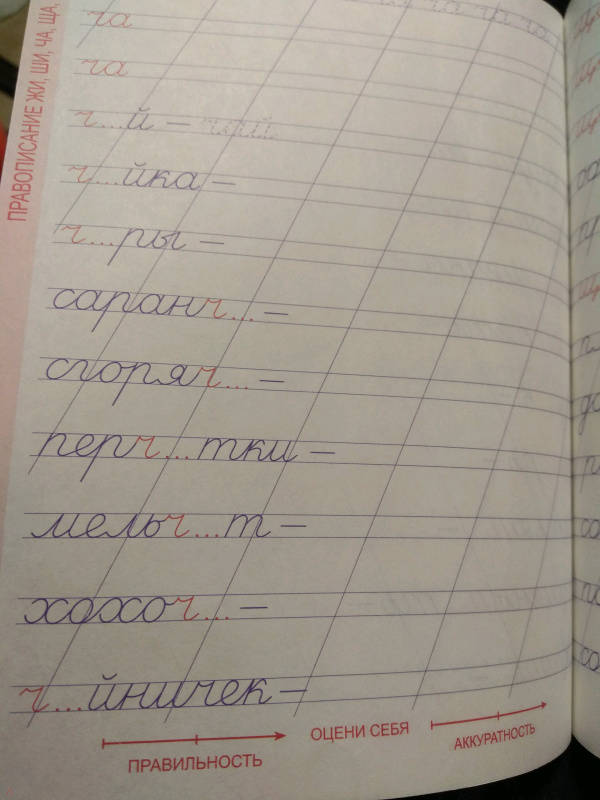 ПРАВОПИСАНИЕ ЖИ, ШИ, ЧА, ЩА,
ча ча ча ча
ча
ч...й – чай
ч...йка –
ч...ры –
саранч... –
сгоряч... –
перч...тки –
мельч...т –
хохоч... –
ч...йничек –
ПРАВИЛЬНОСТЬ
ОЦЕНИ СЕБЯ
АККУРАТНОСТЬ